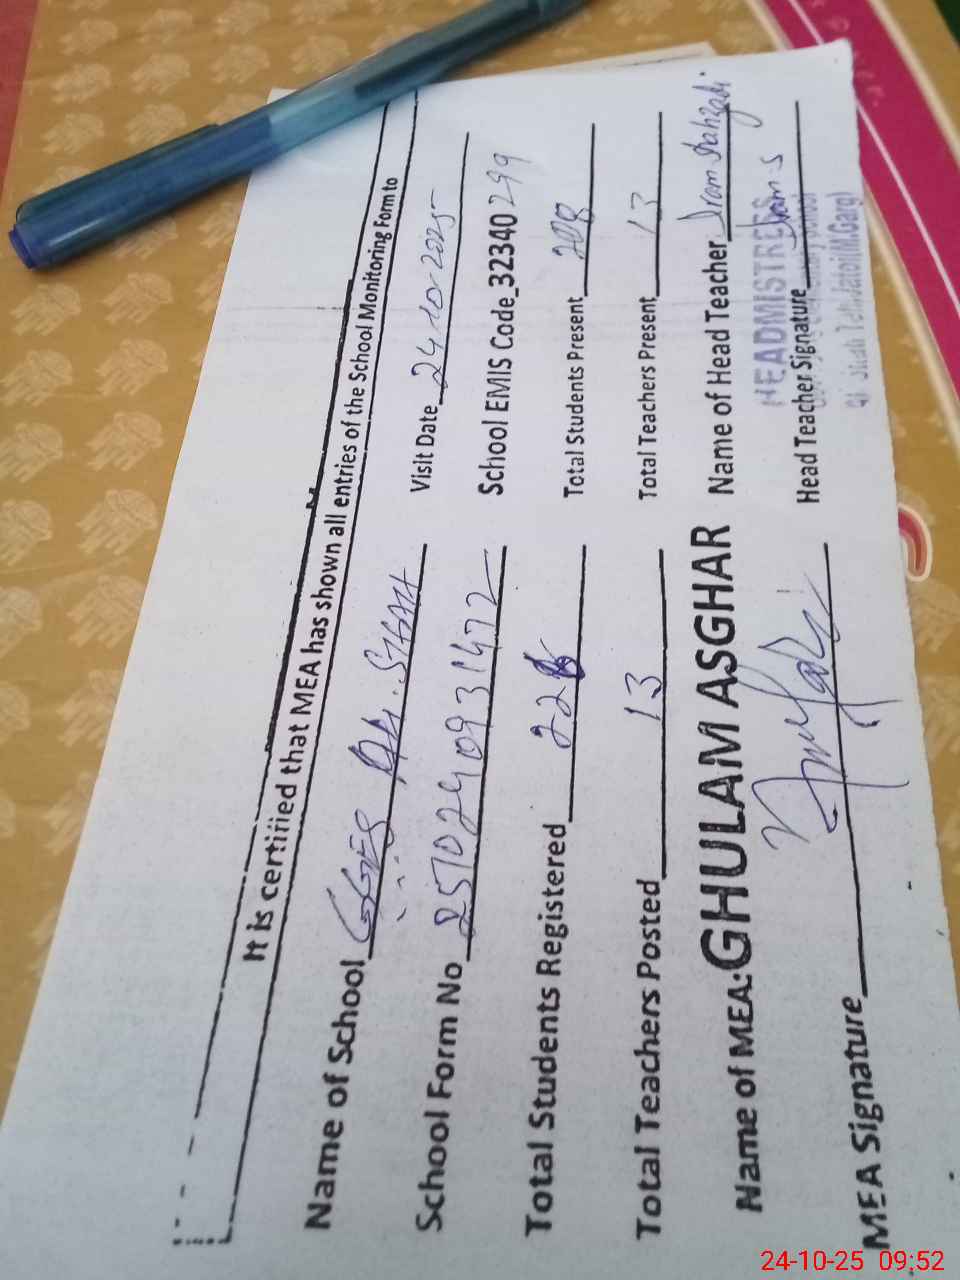 It is certified that MEA has shown all entries of the School Monitoring Form to
Name of School GGES Ali. SHAH Visit Date 24-10-2025
School Form No 2510240931472 School EMIS Code_32340299
Total Students Registered 22 Total Students Present 208
Total Teachers Posted 13 Total Teachers Present 13
Name of MEA: GHULAM ASGHAR Name of Head Teacher Iram Shahzadi
MEA Signature Head Teacher Signature Iram S
HEADMISTRESS
Jatoi (M.Garg)
24-10-25 09:52